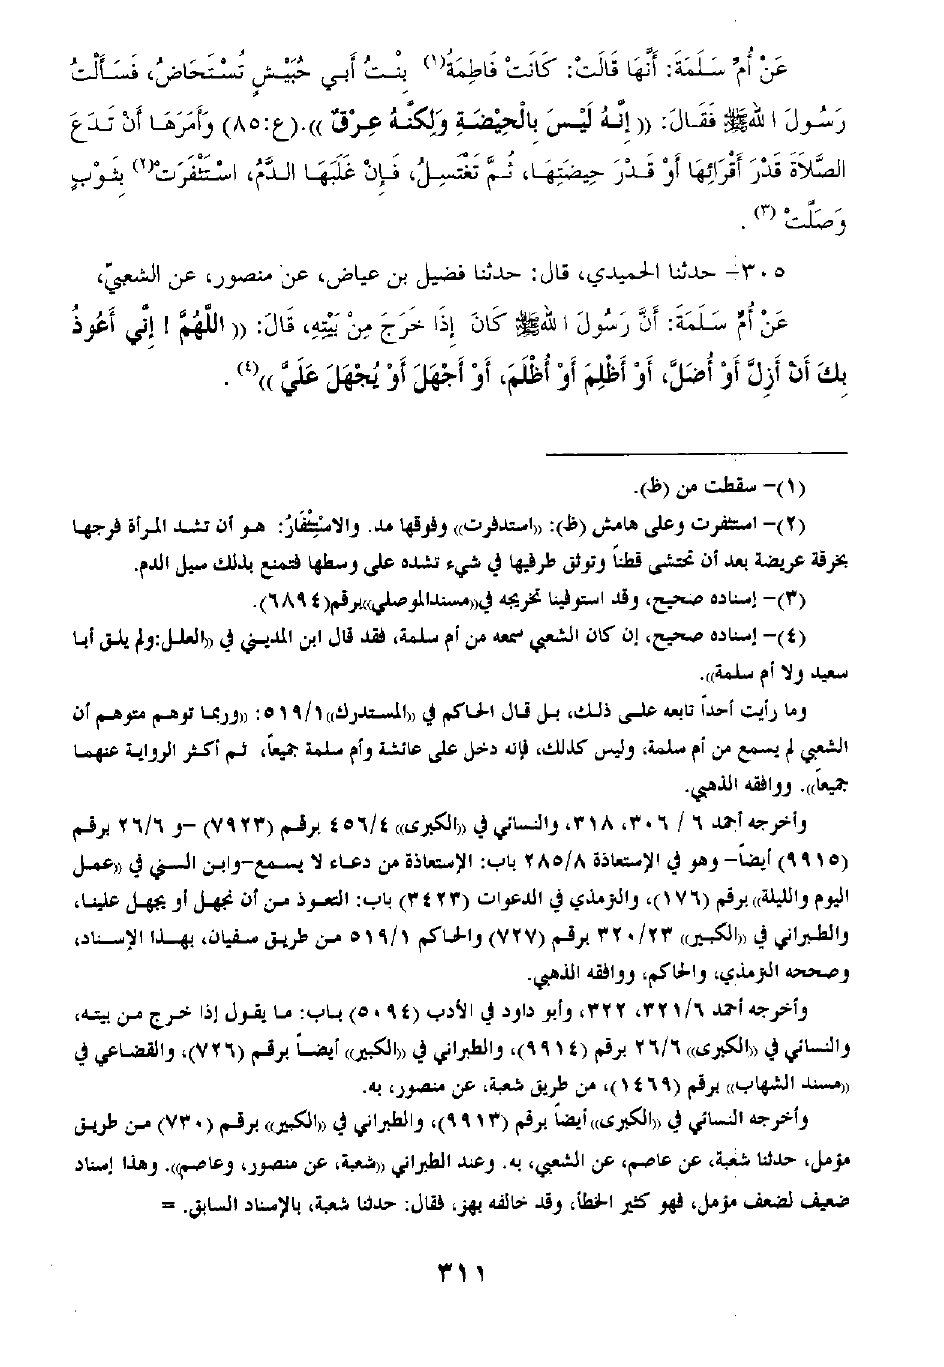 عَنْ أُمِّ سَلَمَةَ: أَنَّهَا قَالَتْ: كَانَتْ فَاطِمَةُ(١) بِنْتُ أَبِي حُبَيْشٍ تُسْتَحَاضُ، فَسَأَلْتُ
رَسُولَ اللهِ ﷺ فَقَالَ: (( إِنَّهُ لَيْسَ بِالْحِيْضَةِ وَلِكنَّهُ عِرْقٌ )).(ع:٨٥) وَأَمَرَهَا أَنْ تَدَعَ
الصَّلاَةَ قَدْرَ أَقْرَائِهَا أَوْ قَدْرَ حِيضَتِهَا، ثُمَّ تَغْتَسِلُ، فَإِنْ غَلَبَهَا الدَّمُ، اسْتَثْفَرَتْ(٢) بِثَوْبٍ
وَصَلَّتْ (٣) .
٣٠٥– حدثنا الحميدي، قال: حدثنا فضيل بن عياض، عن منصور، عن الشعبيّ،
عَنْ أُمِّ سَلَمَةَ: أَنَّ رَسُولَ اللهِ ﷺ كَانَ إِذَا خَرَجَ مِنْ بَيْتِهِ، قَالَ: (( اللَّهُمَّ ! إِنِّي أَعُوذُ
بِكَ أَنْ أَزِلَّ أَوْ أُضَلَّ، أَوْ أَظْلِمَ أَوْ أُظْلَمَ، أَوْ أَجْهَلَ أَوْ يُجْهَلَ عَلَيَّ ))(٤) .
(١)– سقطت من (ظ).
(٢)– استثفرت وعلى هامش (ظ): ((استدفرت)) وفوقها مد. والاسْتِثْفَارُ: هو أن تشد المرأة فرجها
بخرقة عريضة بعد أن تحتشى قطناً وتوثق طرفيها في شيء تشده على وسطها فتمنع بذلك سيل الدم.
(٣)– إسناده صحيح، وقد استوفينا تخريجه في((مسندالموصلي))برقم(٦٨٩٤).
(٤)– إسناده صحيح، إن كان الشعبي سمعه من أم سلمة، فقد قال ابن المديني في ((العلل:ولم يلق أبا
سعيد ولا أم سلمة)).
وما رأيت أحداً تابعه على ذلك، بل قال الحاكم في ((المستدرك))٥١٩/١: ((وربما توهم متوهم أن
الشعبي لم يسمع من أم سلمة، وليس كذلك، فإنه دخل على عائشة وأم سلمة جميعاً، ثم أكثر الرواية عنهما
جميعاً)). ووافقه الذهبي.
وأخرجه أحمد ٦ / ٣٠٦، ٣١٨، والنسائي في ((الكبرى)) ٤٥٦/٤ برقم (٧٩٢٣) –و ٢٦/٦ برقم
(٩٩١٥) أيضاً– وهو في الإستعاذة ٢٨٥/٨ باب: الإستعاذة من دعاء لا يسمع–وابن السني في ((عمل
اليوم والليلة)) برقم (١٧٦)، والترمذي في الدعوات (٣٤٢٣) باب: التعوذ من أن نجهل أو يجهل علينا،
والطبراني في ((الكبير)) ٣٢٠/٢٣ برقم (٧٢٧) والحاكم ٥١٩/١ من طريق سفيان، بهذا الإسناد،
وصححه الترمذي، والحاكم، ووافقه الذهبي.
وأخرجه أحمد ٣٢١/٦، ٣٢٢، وأبو داود في الأدب (٥٠٩٤) باب: ما يقول إذا خرج من بيته،
والنسائي في ((الكبرى)) ٢٦/٦ برقم (٩٩١٤)، والطبراني في ((الكبير)) أيضاً برقم (٧٢٦)، والقضاعي في
((مسند الشهاب)) برقم (١٤٦٩)، من طريق شعبة، عن منصور، به.
وأخرجه النسائي في ((الكبرى)) أيضاً برقم (٩٩١٣)، والطبراني في ((الكبير)) برقم (٧٣٠) من طريق
مؤمل، حدثنا شعبة، عن عاصم، عن الشعبي، به. وعند الطبراني ((شعبة، عن منصور، وعاصم)). وهذا إسناد
ضعيف لضعف مؤمل، فهو كثير الخطأ، وقد خالفه بهز، فقال: حدثنا شعبة، بالإسناد السابق. =
٣١١